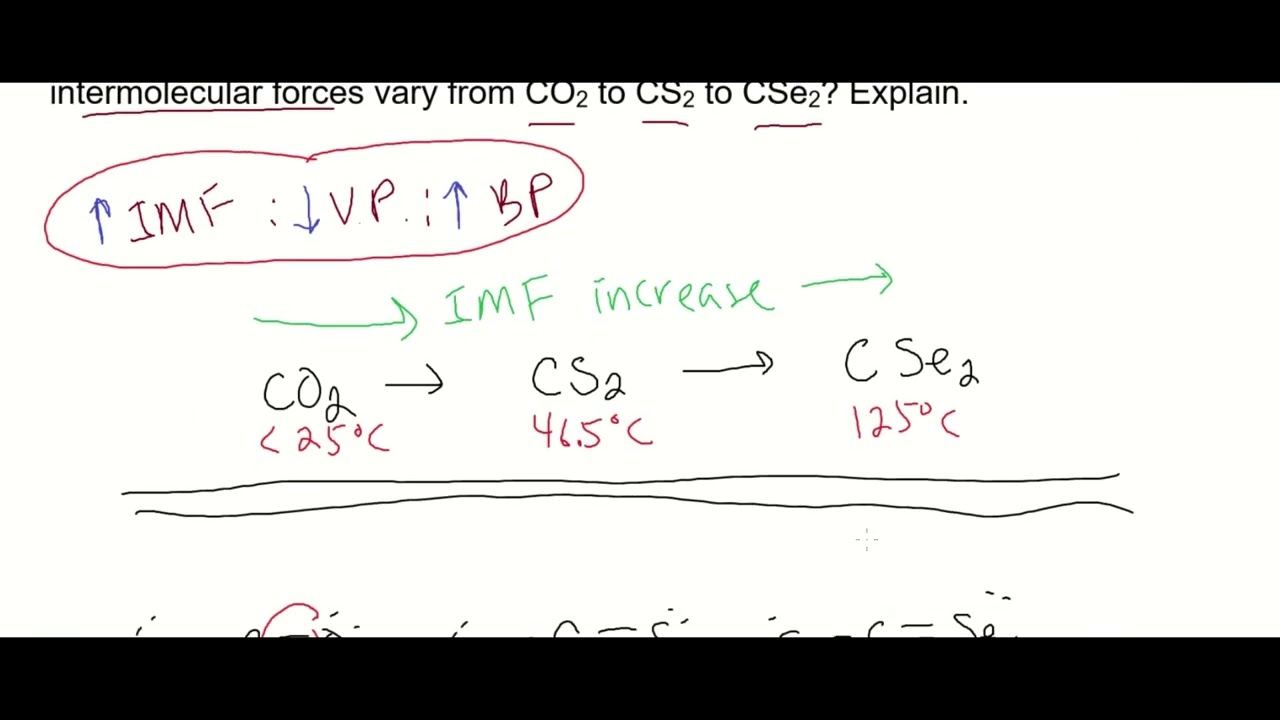 intermolecular forces vary from CO₂ to CS₂ to CSe₂? Explain.
↑ IMF : ↓ V.P. : ↑ BP
→ IMF increase →
CO₂ → CS₂ → CSe₂
< 25°C 46.5°C 125°C